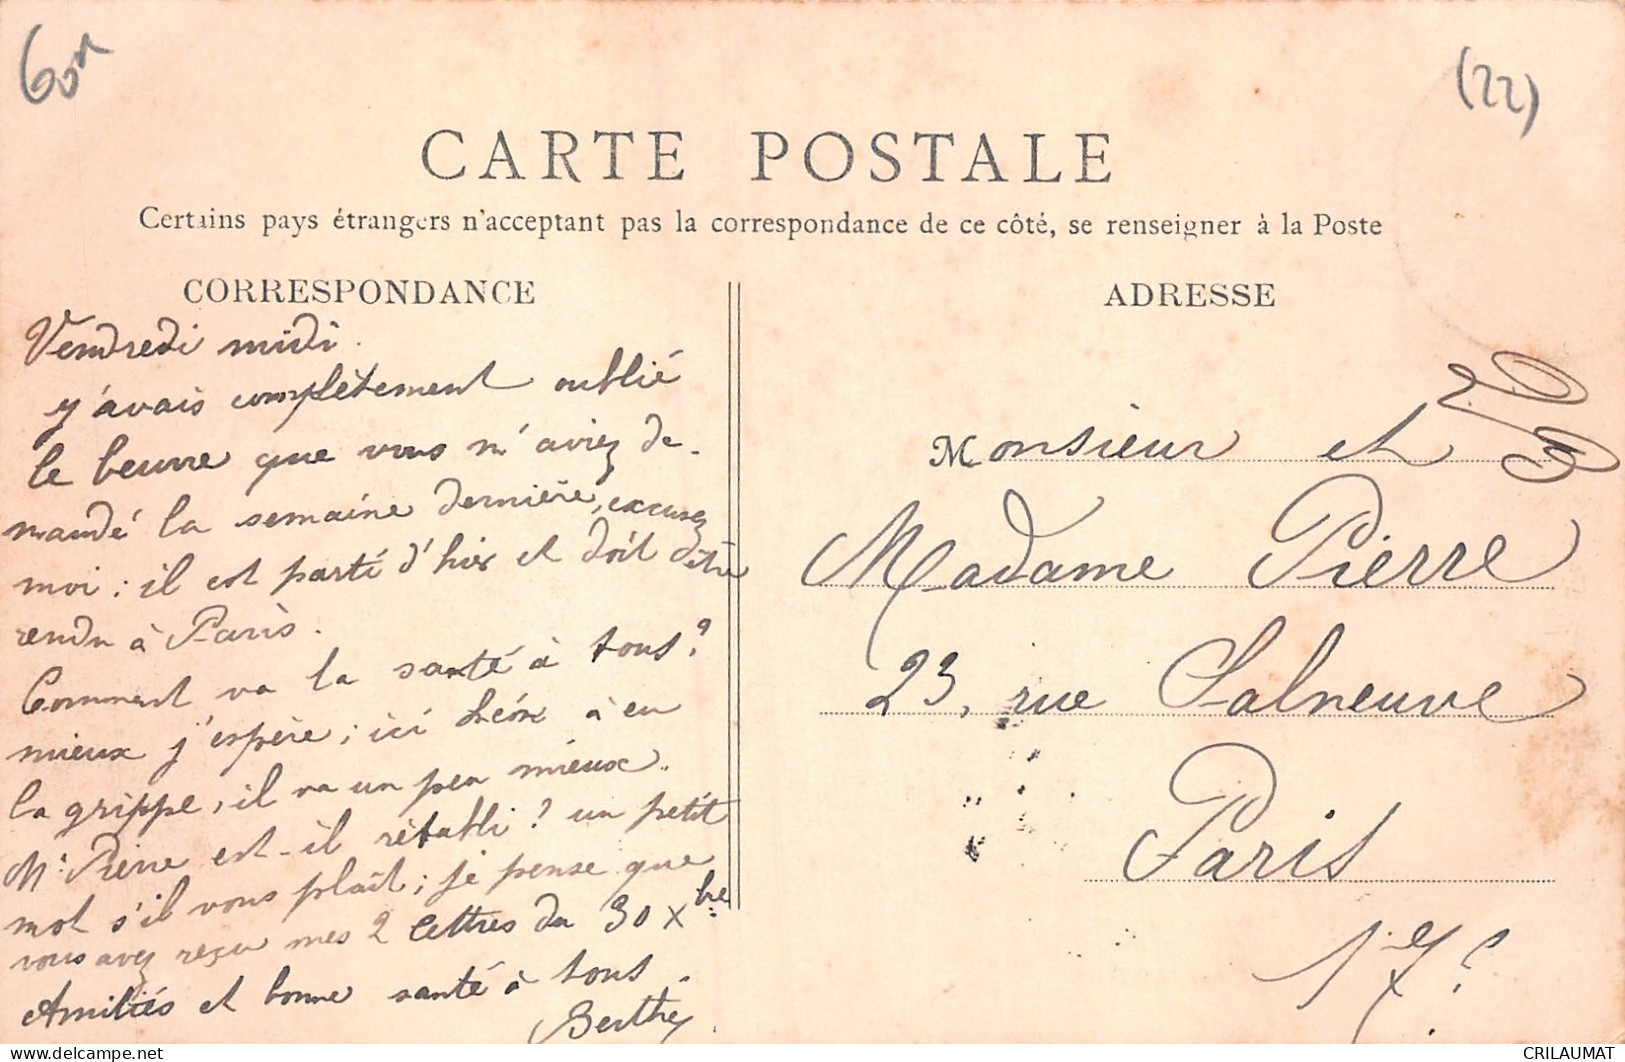 60n
(22)
CARTE POSTALE
Certains pays étrangers n'acceptant pas la correspondance de ce côté, se renseigner à la Poste
CORRESPONDANCE
Vendredi midi.
J'avais complètement oublié
le beurre que vous m'aviez de-
mandé la semaine dernière, excusez
moi : il est parti d'hier et doit être
rendu à Paris.
Comment va la santé à tous ?
mieux j'espère ; ici Léon à eu
la grippe, il va un peu mieux.
Mr Pierre est-il rétabli ? un petit
mot s'il vous plaît ; je pense que
vous avez reçu mes 2 lettres du 30 Xbre
Amitiés et bonne santé à tous.
Berthe
ADRESSE
Monsieur et
Madame Pierre
23, rue Salneuve
Paris
17e
CRILAUMAT